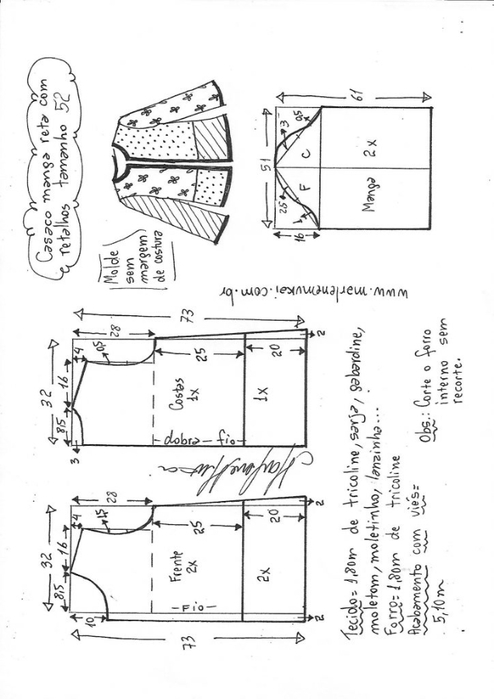 Casaco manga reta com
retalhos tamanho 52
Molde
sem
margem
de costura
51
61
16
25
1
3
0,5
F
C
Manga
2x
www.marlenemukai.com.br
73
28
32
4
16
8,5
3
0,5
25
20
2
Costas
1x
1x
dobra
fio
73
28
32
4
16
8,5
10
1,5
25
20
2
2
Frente
2x
2x
Fio
Tecido= 1,80m de tricoline, sarja, gabardine,
moletom, moletinho, lanzinha...
Forro= 1,80m de tricoline
Acabamento com viés=
5,10m
Obs.: Corte o forro
interno sem
recorte.